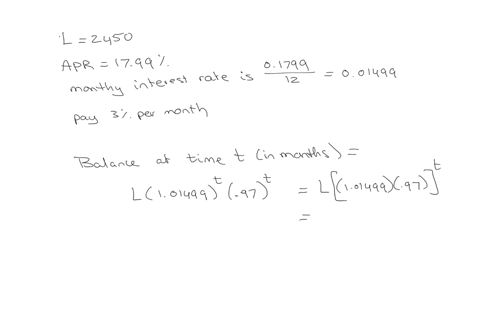 L = 2450
APR = 17.99%
monthy interest rate is 0.1799/12 = 0.01499
pay 3% per month
Balance at time t (in months) =
L(1.01499)^t (.97)^t = L[(1.01499)(.97)]^t
=